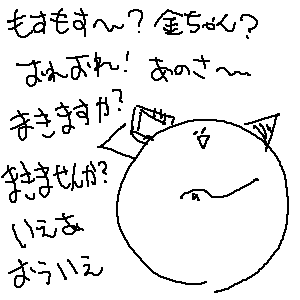 もすもす〜?金ちゃん?
おれおれ!あのさ〜
まきますか?
まきませんか?
いえぁ
おういえ